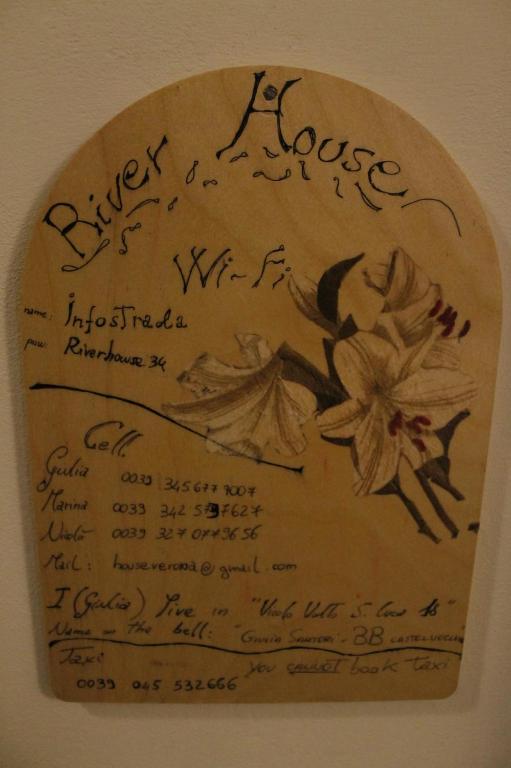 River House
Wi-Fi
name: Infostrada
psw: Riverhouse34
Cell
Giulia 0039 345 677 7007
Marina 0039 342 5797627
Nicolò 0039 327 0779656
Mail: houseverona@gmail.com
I (Giulia) live in "Vicolo Volto S. Luca 18"
Name on the bell: "Giulia Sartori - BB
Taxi you CANNOT book taxi
0039 045 532666